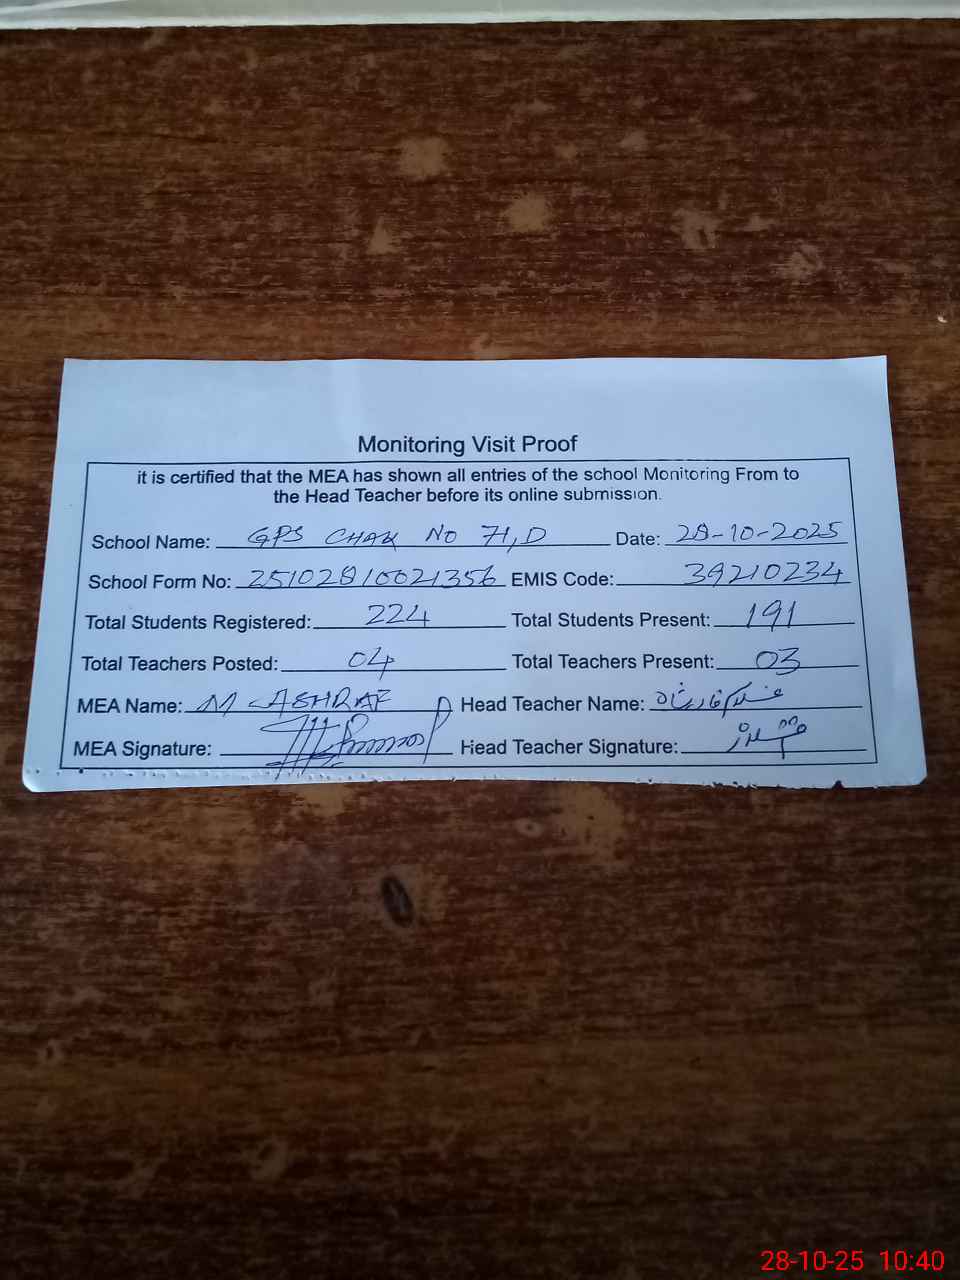 Monitoring Visit Proof
it is certified that the MEA has shown all entries of the school Monitoring From to
the Head Teacher before its online submission.
School Name: GPS CHAK No 71,D Date: 28-10-2025
School Form No: 25102810021356 EMIS Code: 39210234
Total Students Registered: 224 Total Students Present: 191
Total Teachers Posted: 04 Total Teachers Present: 03
MEA Name: M ASHRAF Head Teacher Name:
MEA Signature: Head Teacher Signature:
28-10-25 10:40